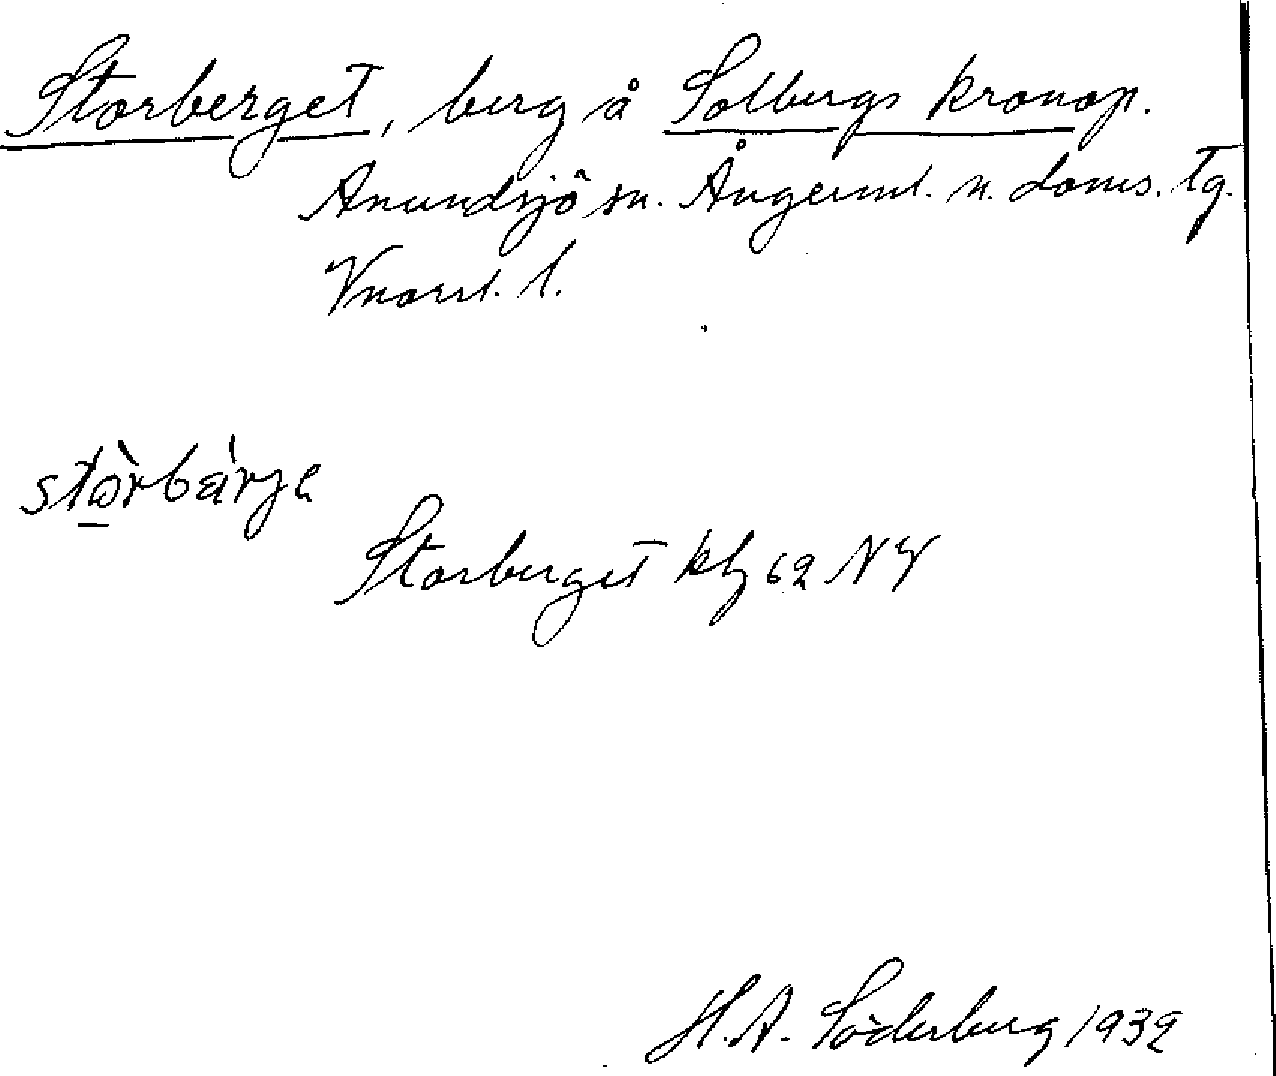 Storberget, berg å Solbergs kronop.
Anundsjö sn. Ångerml. n. doms. tg.
Vnorrl. l.
stòrbǽrje
Storberget kbl 62 NV
H.A. Söderberg 1932